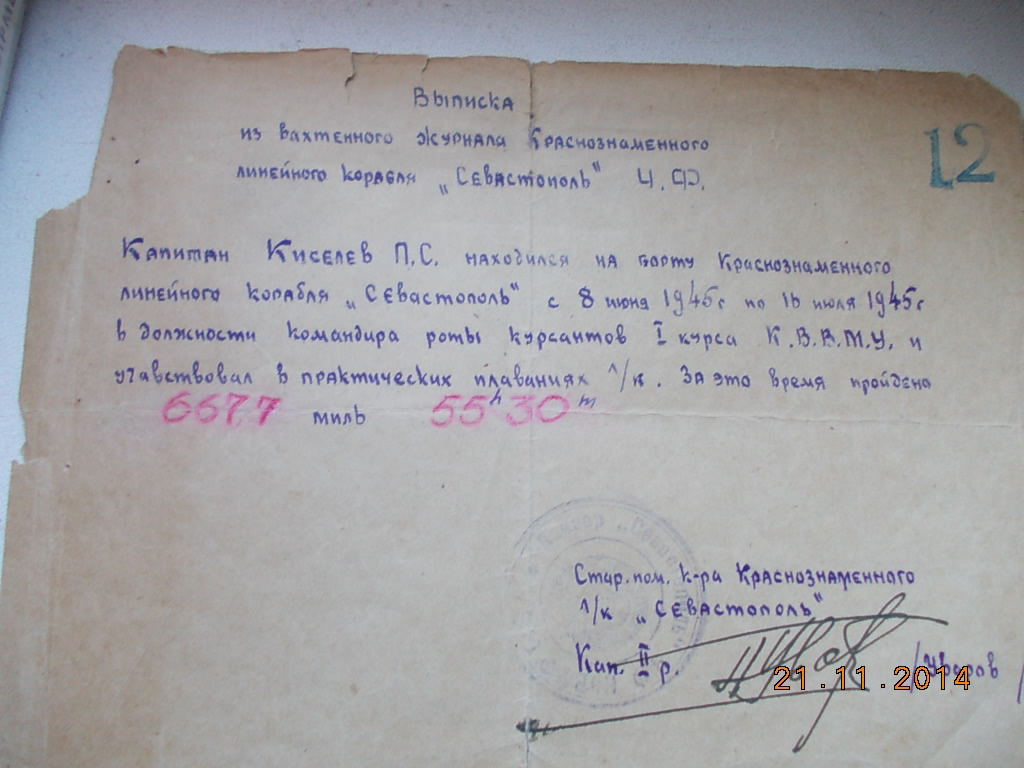 12
Выписка
из вахтенного журнала Краснознаменного
линейного корабля „Севастополь" Ч.Ф.
Капитан Киселев П.С. находился на борту Краснознаменного
линейного корабля „Севастополь" с 8 июня 1945г по 16 июля 1945г
в должности командира роты курсантов I курса К.В.В.М.У. и
учавствовал в практических плаваниях л/к. За это время пройдено
667,7 миль 55ʰ30ᵐ
Стар. пом. к-ра Краснознаменного
л/к „Севастополь"
Кап. II р. /Уваров/
21.11.2014